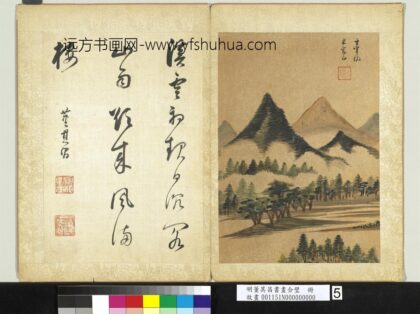 远方书画网:www.yfshuhua.com
溪雲初起日沉閣
山雨欲來風滿
樓
董其昌
明董其昌書畫合璧 冊
故畫 001151N000000000
5